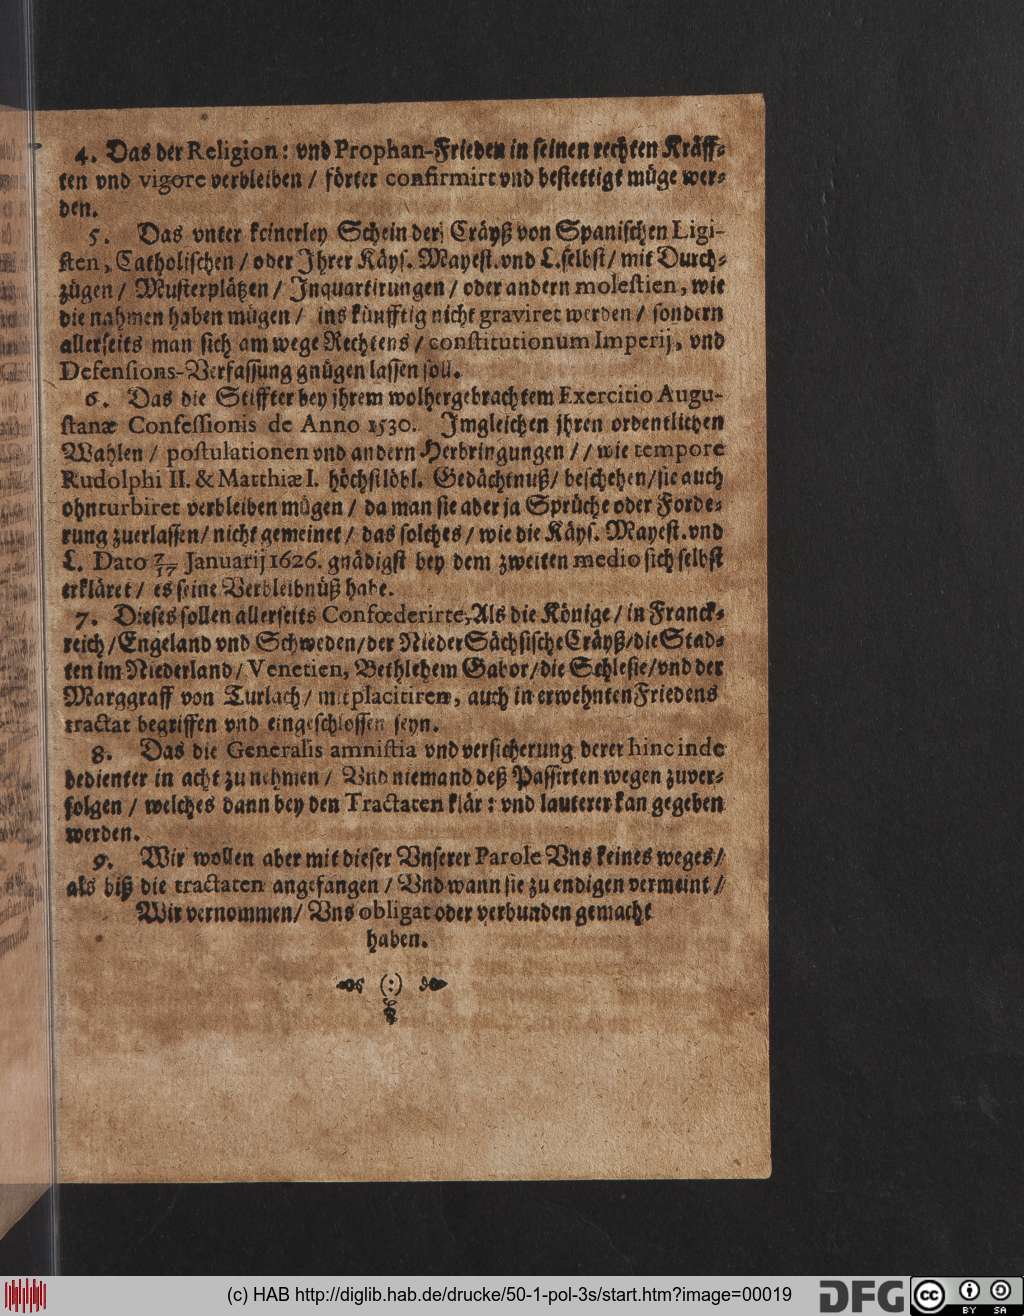 4. Das der Religion: vnd Prophan-Frieden in seinen rechten Kräff-
ten vnd vigore verbleiben / förter confirmirt vnd bestettigt müge wer-
den.
5. Das vnter keinerley Schein der Cräyß von Spanischen Ligi-
sten, Catholischen / oder Jhrer Käys. Mayest. vnd L. selbst / mit Durch-
zügen / Musterplätzen / Jnquartirungen / oder andern molestien, wie
die nahmen haben mügen / ins künfftig nicht graviret werden / sondern
allerseits man sich am wege Rechtens / constitutionum Imperij, vnd
Defensions-Verfassung gnügen lassen soll.
6. Das die Stiffter bey jhrem wolhergebrachtem Exercitio Augu-
stanæ Confessionis de Anno 1530. Jmgleichen jhren ordentlichen
Wahlen / postulationen vnd andern Herbringungen / / wie tempore
Rudolphi II. & Matthiæ I. höchstlöbl. Gedächtnuß / beschehen / sie auch
ohnturbiret verbleiben mügen / da man sie aber ja Sprüche oder Forde-
rung zuerlassen / nicht gemeinet / das solches / wie die Käys. Mayest. vnd
L. Dato 7/17 Januarij 1626. gnädigst bey dem zweiten medio sich selbst
erkläret / es seine Verbleibnüß habe.
7. Dieses sollen allerseits Confœderirte, Als die Könige / in Franck-
reich / Engeland vnd Schweden / der NiederSächsische Cräyß / die Stad-
ten im Niederland / Venetien, Bethlehem Gabor / die Schlesie / vnd der
Marggraff von Turlach / mitplacitiren, auch in erwehnten Friedens
tractat begriffen vnd eingeschlossen seyn.
8. Das die Generalis amnistia vnd versicherung derer hinc inde
bedienter in acht zu nehmen / Vnd niemand deß Passirten wegen zuver-
folgen / welches dann bey den Tractaten klär: vnd lauterer kan gegeben
werden.
9. Wir wollen aber mit dieser Vnserer Parole Vns keines weges /
als biß die tractaten angefangen / Vnd wann sie zu endigen vermeint //
Wir vernommen / Vns obligat oder verbunden gemacht
haben.
(:)
(c) HAB http://diglib.hab.de/drucke/50-1-pol-3s/start.htm?image=00019
DFG
cc BY SA